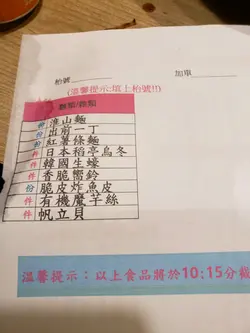 枱號
加單
(溫馨提示:填上枱號!!)
麵類/飯類
淮山麵
份 出前一丁
份 紅薯條麵
件 日本稻亭烏冬
件 韓國生蠔
件 香脆嚮鈴
份 脆皮炸魚皮
件 有機魔芋絲
件 帆立貝
溫馨提示:以上食品將於10:15分截